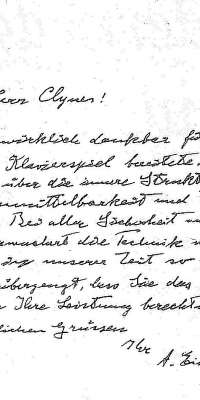 Herr Clynes!
wirklich dankbar für
Klavierspiel bereitete.
über die innere Strukt
mittelbarkeit und
Bei aller Sicherheit
die Technik
unserer Zeit so
überzeugt, dass Sie das
Ihre Leistung berecht
lichen Grüssen
Ihr
A. Ei